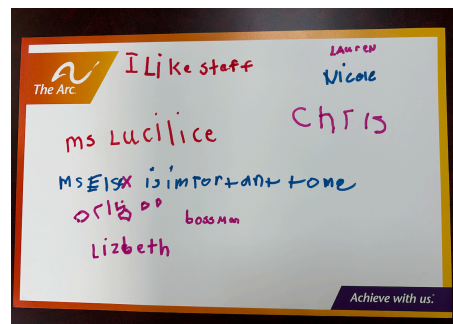 The Arc.
I Like staff
Lauren
Nicole
Chris
ms Lucilice
Ms Elsx is important to me
bossman
Lizbeth
Achieve with us.